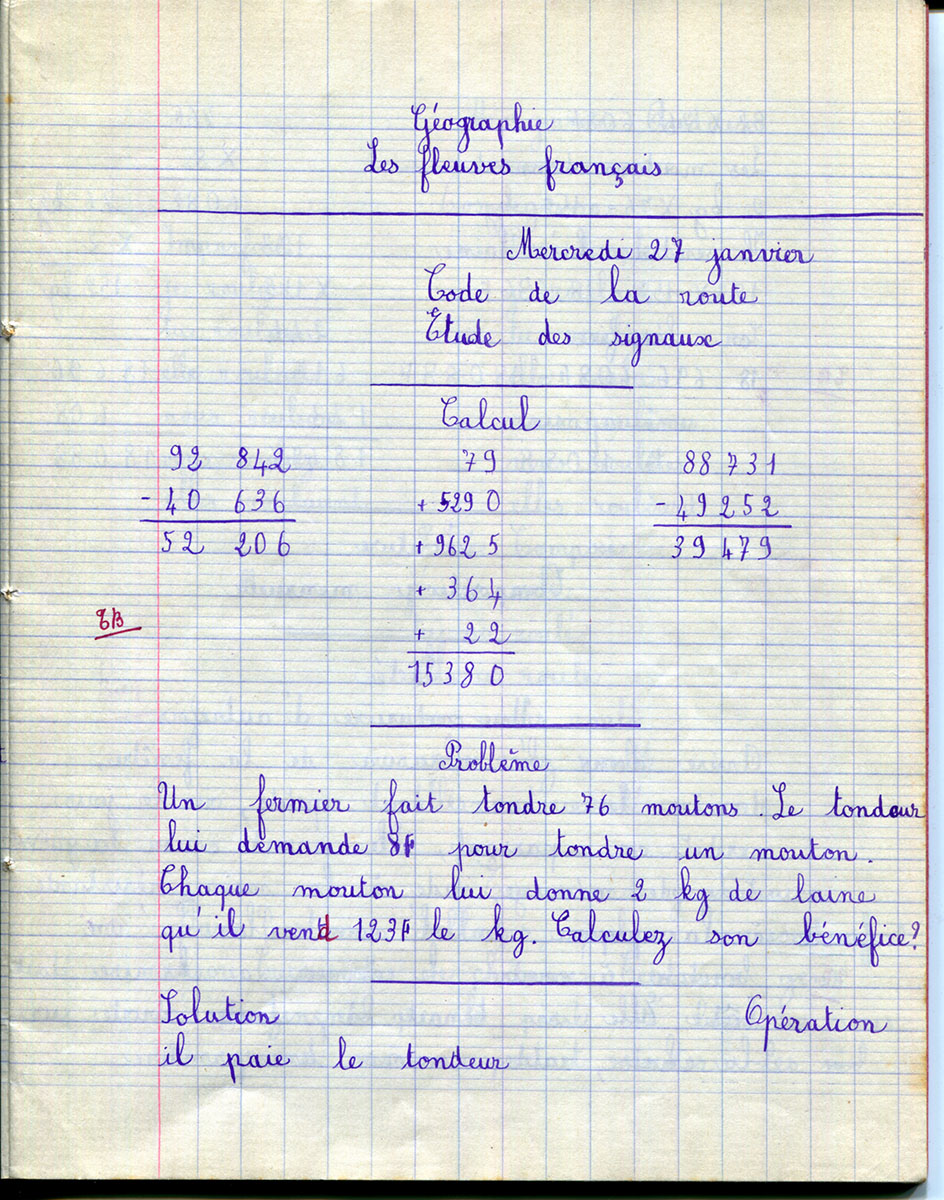 Géographie
Les fleuves français
Mercredi 27 janvier
Code de la route
Etude des signaux
Calcul
92 842
- 40 636
52 206
79
+ 5290
+ 9625
+ 364
+ 22
15380
88 731
- 49 252
39 479
TB
Problème
Un fermier fait tondre 76 moutons. Le tondeur
lui demande 8F pour tondre un mouton.
Chaque mouton lui donne 2 kg de laine
qu'il vend 123F le kg. Calculez son bénéfice?
Solution Opération
il paie le tondeur